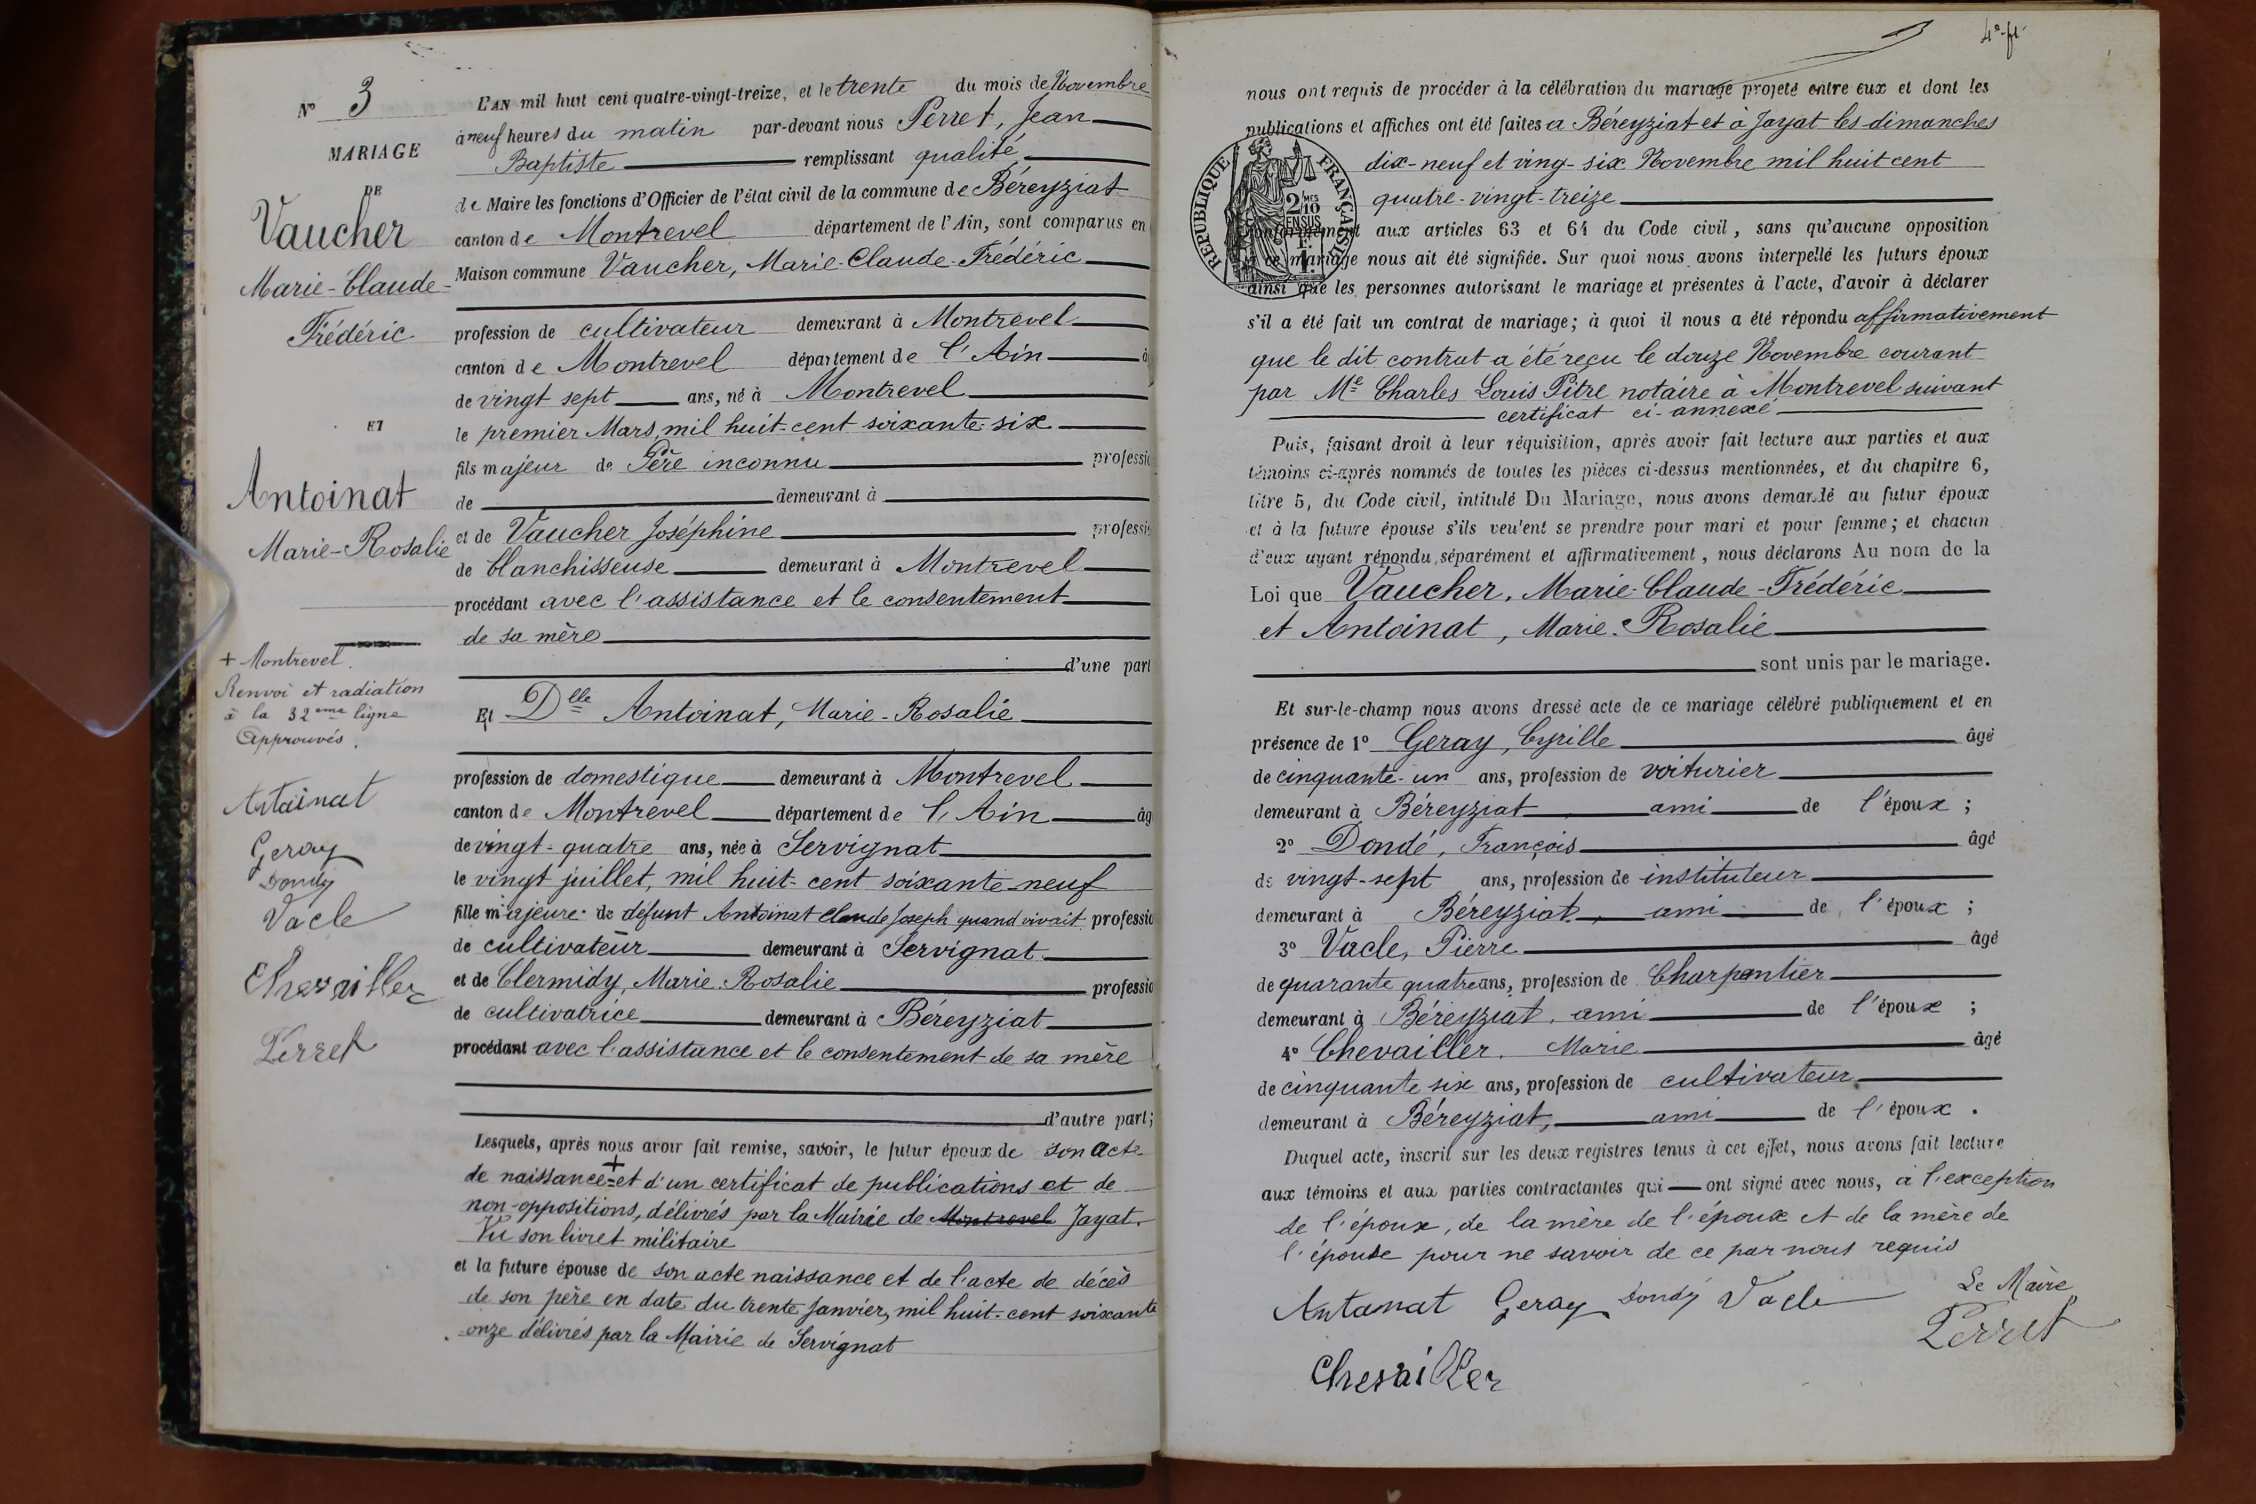 N° 3
MARIAGE
DE
Vaucher
Marie-Claude-
Frédéric
ET
Antoinat
Marie-Rosalie
+ Montrevel.
Renvoi et radiation
à la 32eme ligne
Approuvés.
Antoinat
Geray
Dondé
Vacle
Chevailler
Perret
L'AN mil huit cent quatre-vingt-treize, et le trente du mois de Novembre
à neuf heures du matin par-devant nous Perret, Jean
Baptiste remplissant qualité
de Maire les fonctions d'Officier de l'état civil de la commune de Béreyziat
canton de Montrevel département de l'Ain, sont comparus en
Maison commune Vaucher, Marie-Claude-Frédéric
profession de cultivateur demeurant à Montrevel
canton de Montrevel département de l'Ain â
de vingt sept ans, né à Montrevel
le premier Mars, mil huit-cent soixante-six
fils majeur de Père inconnu professi
de demeurant à
et de Vaucher Joséphine professi
de blanchisseuse demeurant à Montrevel
procédant avec l'assistance et le consentement
de sa mère
d'une part
Et Dlle Antoinat, Marie-Rosalie
profession de domestique demeurant à Montrevel
canton de Montrevel département de l'Ain âg
de vingt-quatre ans, née à Servignat
le vingt juillet, mil huit-cent soixante-neuf
fille majeure de défunt Antoinat Claude Joseph quand vivait professio
de cultivateur demeurant à Servignat
et de Clermidy, Marie-Rosalie professio
de cultivatrice demeurant à Béreyziat
procédant avec l'assistance et le consentement de sa mère
d'autre part;
Lesquels, après nous avoir fait remise, savoir, le futur époux de son acte
de naissance + et d'un certificat de publications et de
non-oppositions, délivrés par la Mairie de Montrevel Jayat.
Vu son livret militaire
et la future épouse de son acte naissance et de l'acte de décès
de son père en date du trente Janvier, mil huit-cent soixante
onze délivrés par la Mairie de Servignat
nous ont requis de procéder à la célébration du mariage projeté entre eux et dont les
publications et affiches ont été faites à Béreyziat et à Jayat les dimanches
dix-neuf et ving-six Novembre mil huit cent
quatre-vingt-treize
REPUBLIQUE FRANÇAISE
2/10 MES
EN SUS
conformément aux articles 63 et 64 du Code civil, sans qu'aucune opposition
à ce mariage nous ait été signifiée. Sur quoi nous avons interpellé les futurs époux
ainsi que les personnes autorisant le mariage et présentes à l'acte, d'avoir à déclarer
s'il a été fait un contrat de mariage; à quoi il nous a été répondu affirmativement
que le dit contrat a été reçu le douze Novembre courant
par Me Charles Louis Pitre notaire à Montrevel suivant
certificat ci-annexé
Puis, faisant droit à leur réquisition, après avoir fait lecture aux parties et aux
témoins ci-après nommés de toutes les pièces ci-dessus mentionnées, et du chapitre 6,
titre 5, du Code civil, intitulé Du Mariage, nous avons demandé au futur époux
et à la future épouse s'ils veulent se prendre pour mari et pour femme; et chacun
d'eux ayant répondu séparément et affirmativement, nous déclarons Au nom de la
Loi que Vaucher, Marie-Claude-Frédéric
et Antoinat, Marie-Rosalie
sont unis par le mariage.
Et sur-le-champ nous avons dressé acte de ce mariage célébré publiquement et en
présence de 1° Geray, Cyrille âgé
de cinquante-un ans, profession de voiturier
demeurant à Béreyziat ami de l'époux;
2° Dondé, François âgé
de vingt-sept ans, profession de instituteur
demeurant à Béreyziat, ami de l'époux;
3° Vacle, Pierre âgé
de quarante quatre ans, profession de Charpentier
demeurant à Béreyziat, ami de l'époux;
4° Chevailler, Marie âgé
de cinquante six ans, profession de cultivateur
demeurant à Béreyziat, ami de l'époux.
Duquel acte, inscrit sur les deux registres tenus à cet effet, nous avons fait lecture
aux témoins et aux parties contractantes qui ont signé avec nous, à l'exception
de l'époux, de la mère de l'époux et de la mère de
l'épouse pour ne savoir de ce par nous requis
Antoinat Geray Dondé Vacle Le Maire
Perret
Chevailler